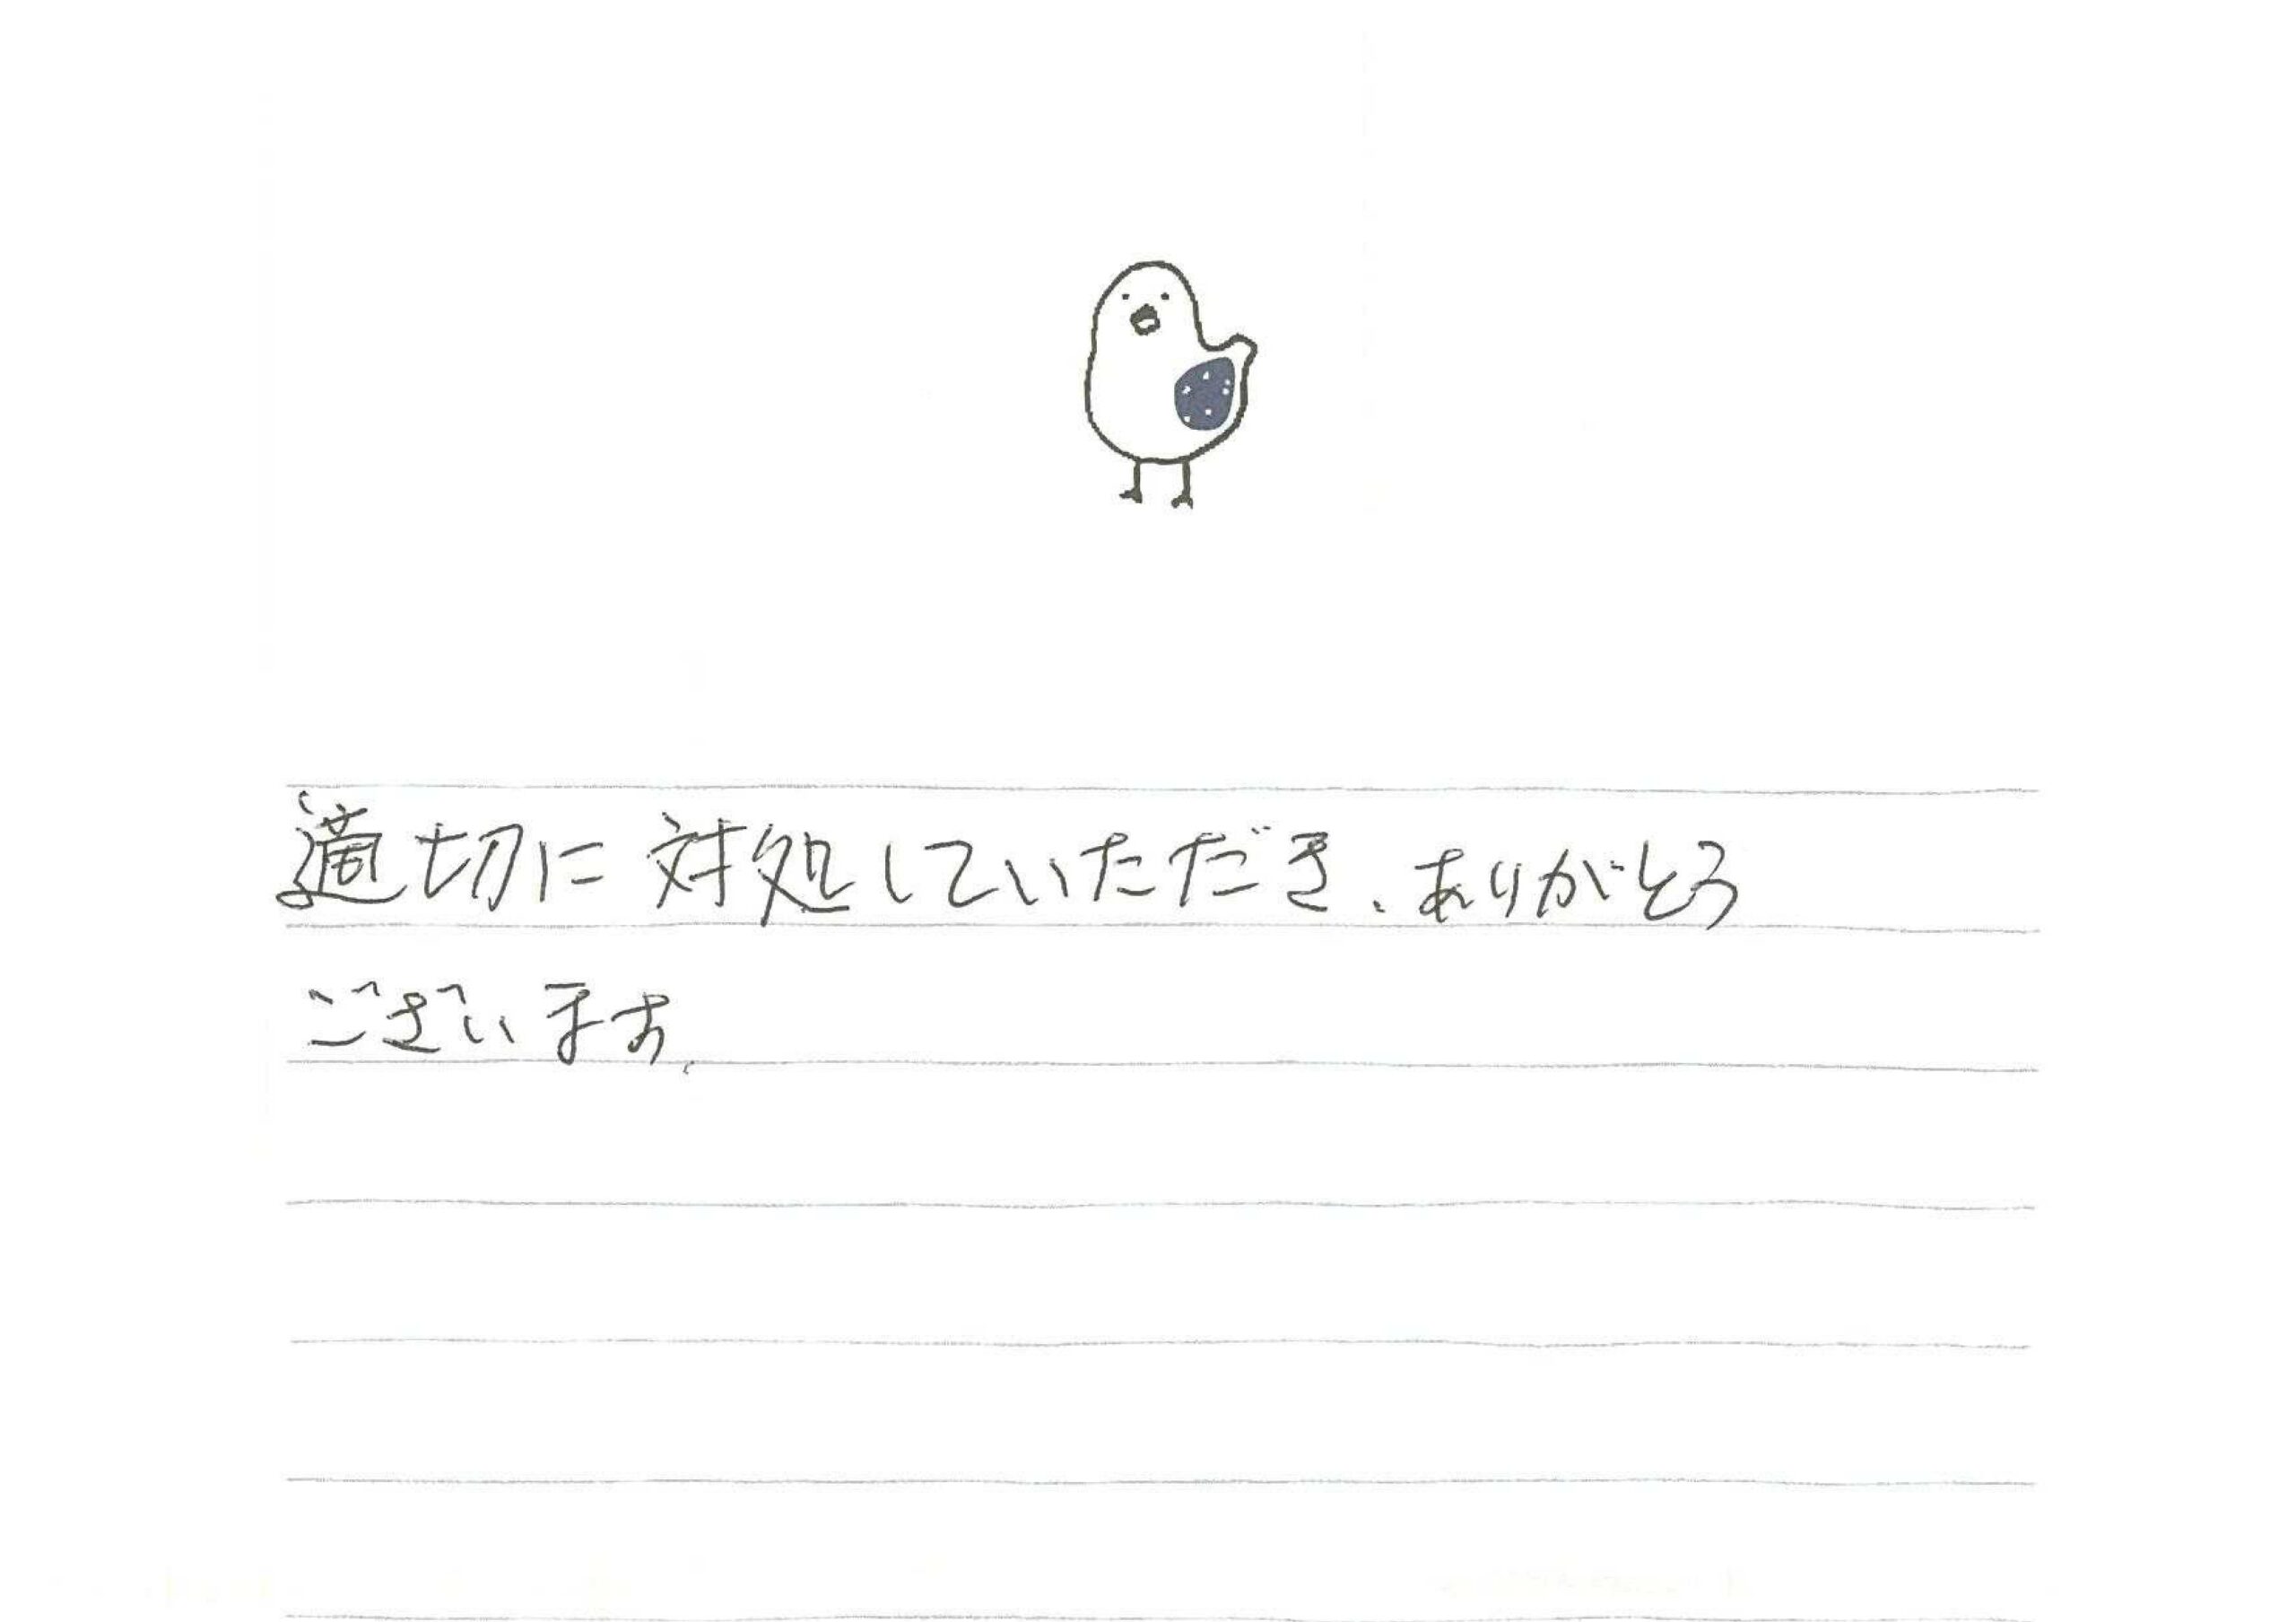 適切に対処していただき、ありがとう
ございます。